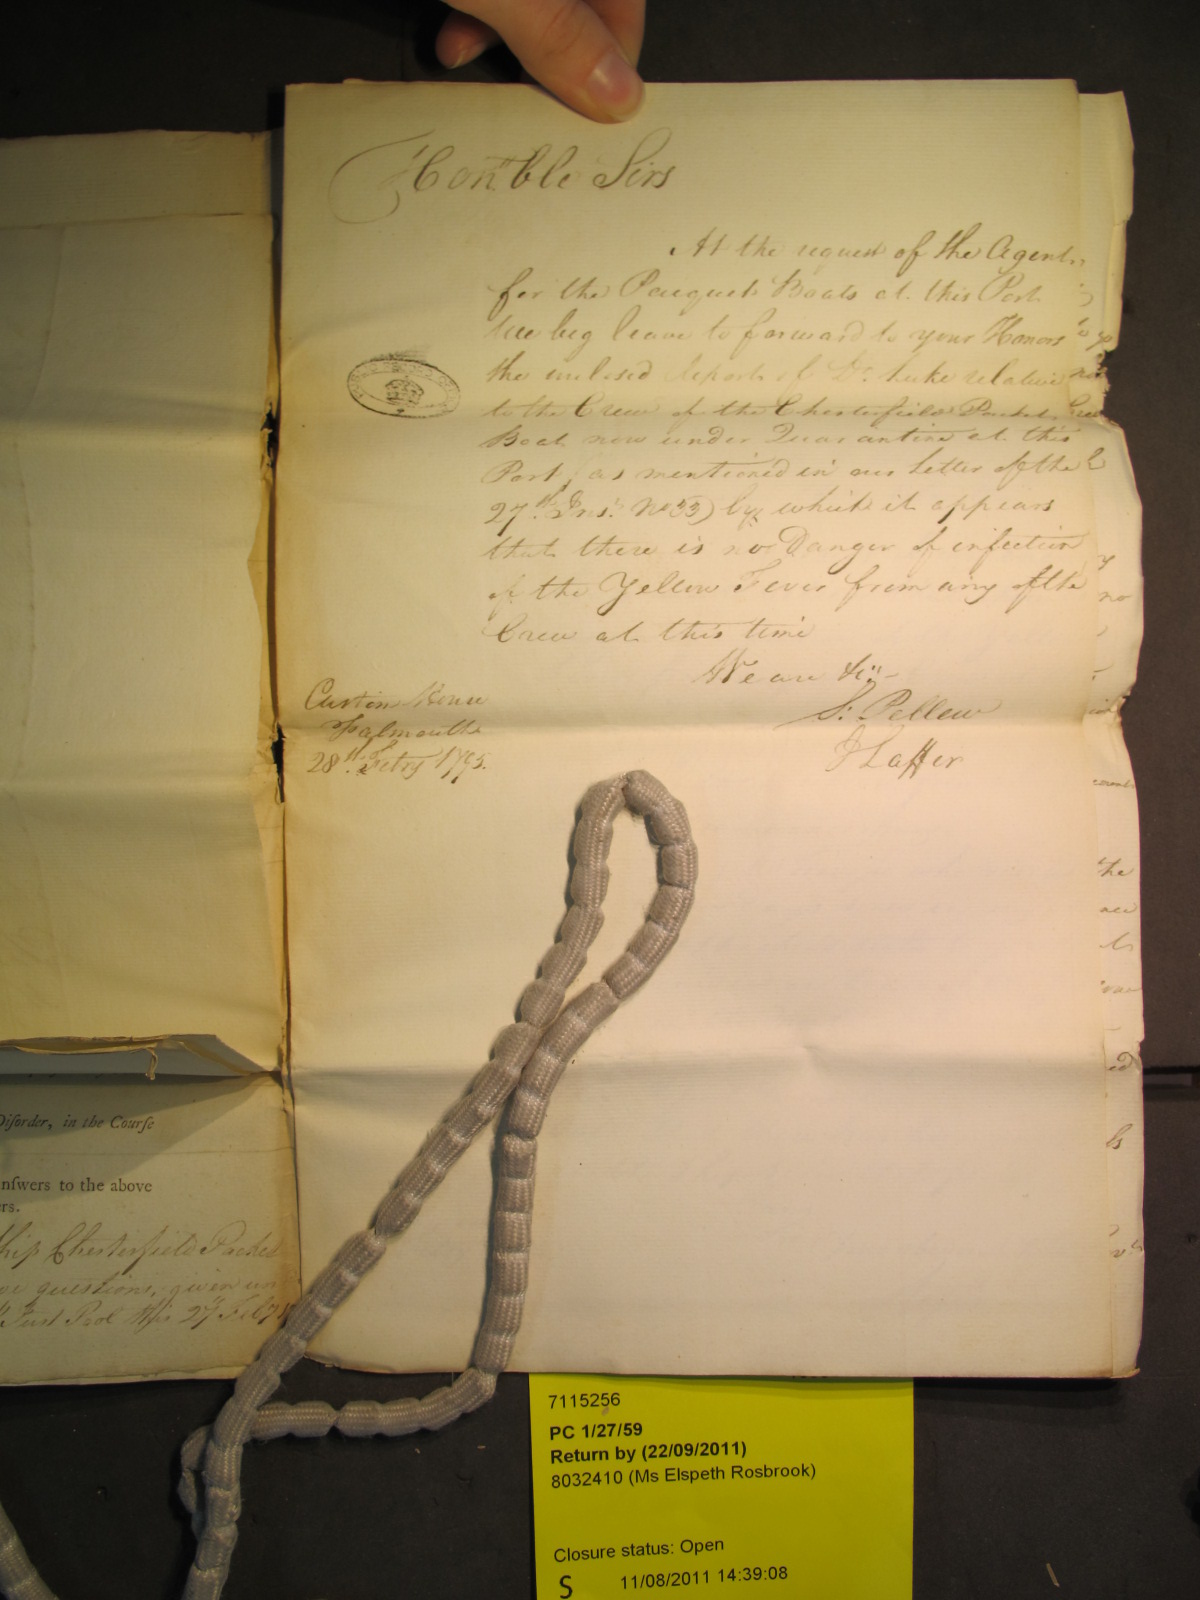 Hon'ble Sirs
At the request of the Agent
for the Pacquet Boats at this Port
We beg leave to forward to your Honors
the inclosed Report of Dr. Luke relative
to the Crew of the Chesterfield Packet
Boat now under Quarantine at this
Port (as mentioned in our Letter of the
27th. Inst. No 33) by which it appears
that there is no Danger of infection
of the Yellow Fever from any of the
Crew at this time
We are &c:-
S: Pellew
J Laffer
Custom House
Falmouth
28th. Febry 1795.
Diſorder, in the Courſe
nſwers to the above
rs.
hip Chesterfield Packet
questions, given
27 Feb
no
the
ed
7115256
PC 1/27/59
Return by (22/09/2011)
8032410 (Ms Elspeth Rosbrook)
Closure status: Open
S 11/08/2011 14:39:08